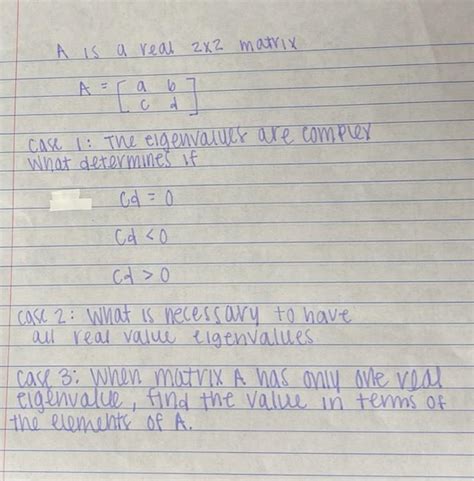 A is a real 2x2 matrix
A = [ a b
c d ]
case 1: The eigenvalues are complex
What determines if
cd = 0
cd < 0
cd > 0
case 2: What is necessary to have
all real value eigenvalues
case 3: When matrix A has only one real
eigenvalue, find the value in terms of
the elements of A.